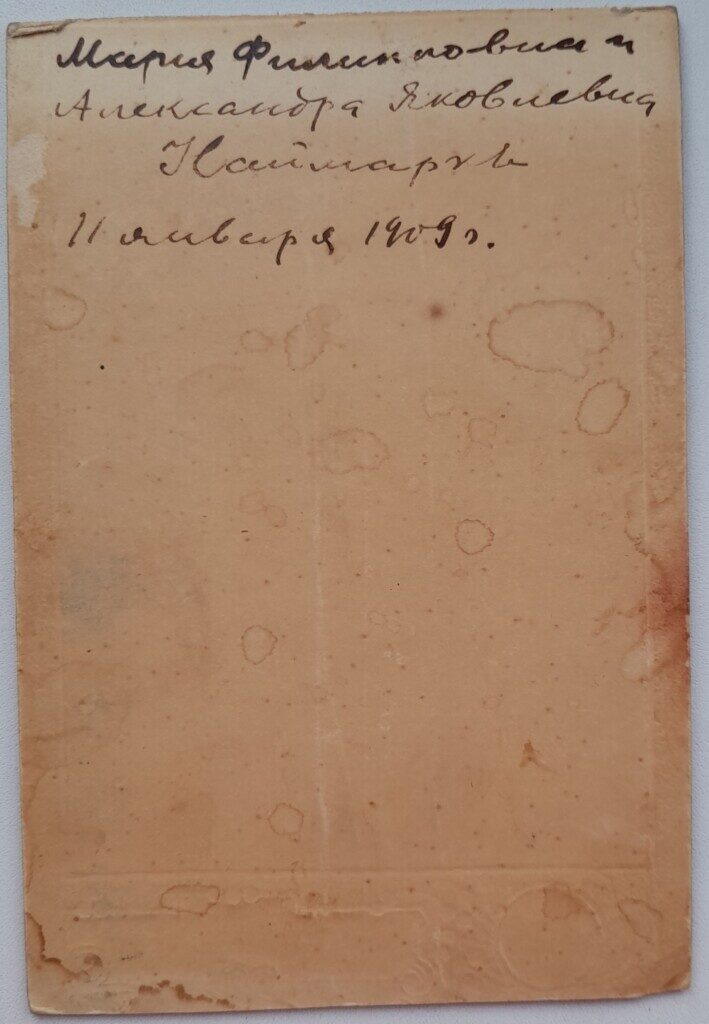 Мария Филипповна и
Александра Яковлевна
Наймаркъ
11 января 1909 г.